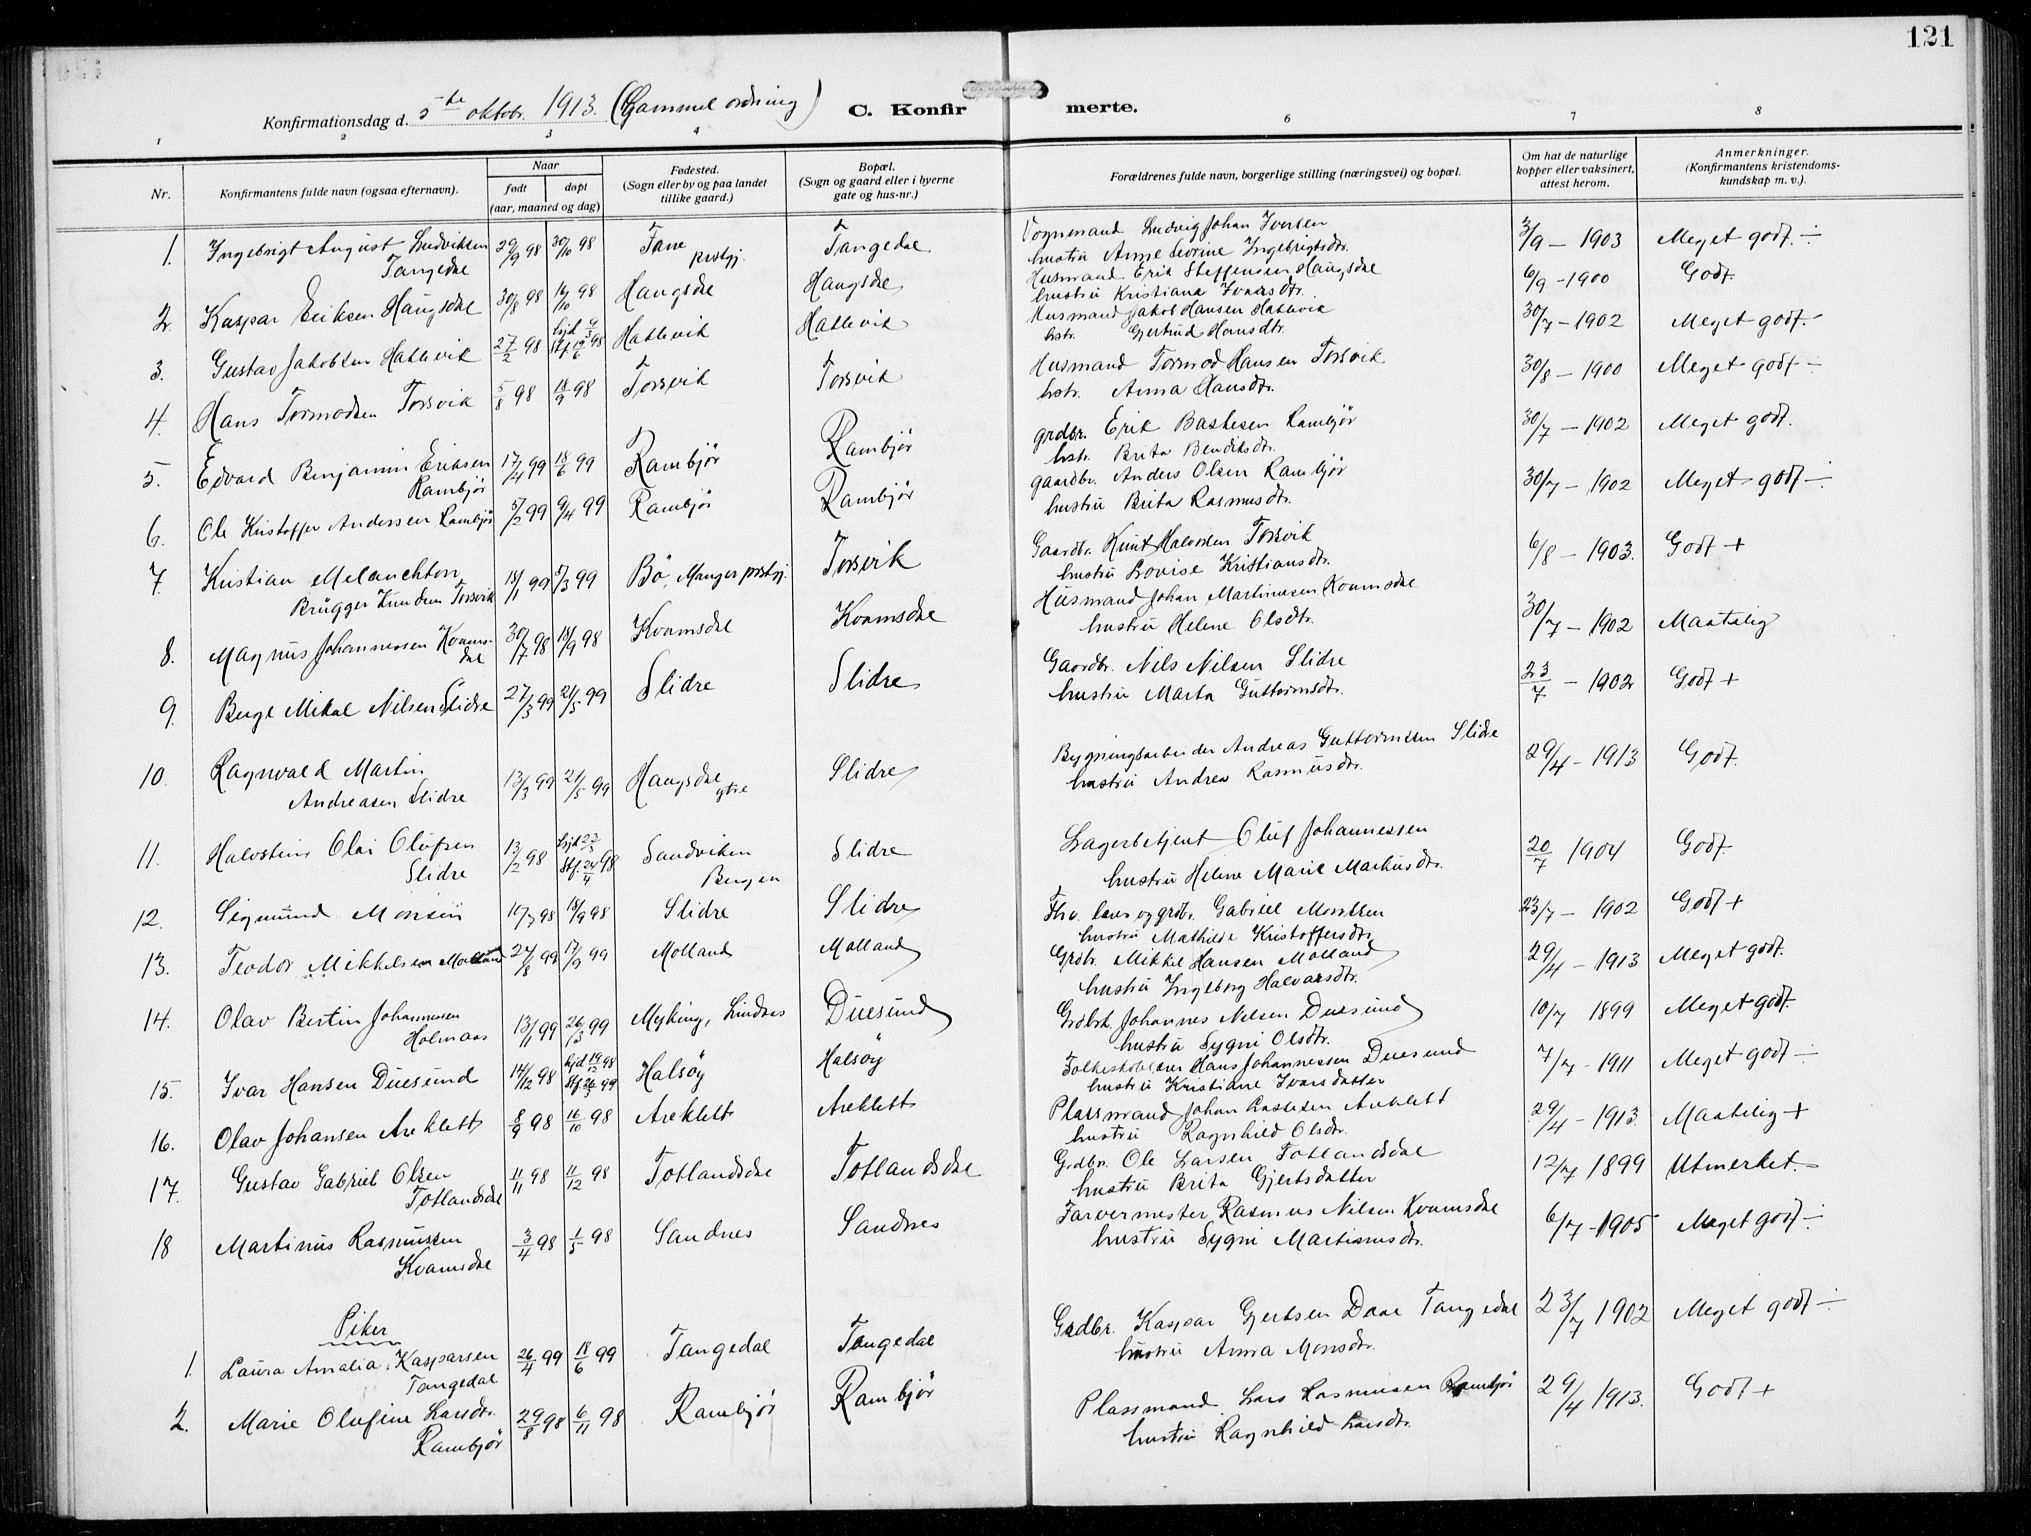 121
Konfirmationsdag d. 5te oktobr. 1913. (Gammel ordning) C. Konfirmerte.
1 2 3 4 6 7 8
Nr. Konfirmantens fulde navn (ogsaa efternavn). Naar født døpt (aar, maaned og dag) Fødested. (Sogn eller by og paa landet tillike gaard.) Bopæl. (Sogn og gaard eller i byerne gate og hus-nr.) Forældrenes fulde navn, borgerlige stilling (næringsvei) og bopæl. Om hat de naturlige kopper eller vaksinert, attest herom. Anmerkninger. (Konfirmantens kristendoms-kundskap m. v.).
1. Ingebrigt August Ludviksen Tangedal 29/9 98 30/10 98 Fane prstgj. Tangedal Vognmand Ludvig Johan Iversen hustru Anne Severine Ingebrigtsdtr. 3/9 - 1903 Meget godt. -
2. Kaspar Eriksen Haugsdal 30/8 98 16/10 98 Haugsdal Haugsdal Husmand Erik Steffensen Haugsdal hustru Kristiana Ivarsdtr. 6/9 - 1900 Godt.
3. Gustav Jakobsen Hatlevik 27/2 98 hjd 9/3 Stf. 19/6 98 Hatlevik Hatlevik Husmand Jakob Hansen Hatlevik hstr. Gjertrud Hansdtr. 30/7 - 1902 Meget godt. -
4. Hans Tormodsen Torsvik 5/8 98 18/9 98 Torsvik Torsvik Husmand Tormod Hansen Torsvik hstr. Anna Hansdtr. 30/8 - 1900 Meget godt -
5. Edvard Benjamin Eriksen Rambjör 17/4 99 18/6 99 Rambjör Rambjör grdbr. Erik Bastesen Rambjör hstr. Brita Bendiksdtr. 30/7 - 1902 Meget godt.
6. Ole Kristoffer Andersen Rambjör 5/2 99 9/4 99 Rambjör Rambjör gaardbr. Anders Olsen Rambjör hustru Brita Rasmusdtr. 30/7 - 1902 Meget godt -
7. Kristian Melanchton Brügger Knudsen Torsvik 18/1 99 5/3 99 Bö, Manger prstgj. Torsvik Gaardbr. Knut Halvorsen Torsvik hustru Lovise Kristiansdtr. 6/8 - 1903. Godt +
8. Magnus Johannessen Kvamsdal 30/7 98 18/9 98 Kvamsdal Kvamsdal Husmand Johan Martinusen Kvamsdal hustru Helene Olsdtr. 30/7 - 1902 Maatelig
9. Berge Mikal Nilsen Slidre 27/3 99 21/5 99 Slidre Slidre Gaardbr. Nils Nilsen Slidre hustru Marta Guttormsdtr. 23/7 - 1902 Godt +
10. Ragnvald Martin Andreasen Slidre 13/3 99 21/5 99 Haugsdal ytre Slidre Bygningsarbeider Andreas Guttormsen Slidre hustru Andrea Rasmusdtr. 29/4 - 1913 Godt.
11. Halvstein Olai Olufsen Slidre 13/2 98 hjd 23/3 Stf. 24/4 98 Sandviken Bergen Slidre Lagerbetjent Oluf Johannessen hustru Helene Marie Markusdtr. 20/7 1904 Godt.
12. Sigmund Monsen 10/7 98 18/9 98 Slidre Slidre Fhv. lærer og grdbr. Gabriel Monsen hustru Mathilde Kristoffersdtr. 23/7 - 1902 Godt +
13. Teodor Mikkelsen Molland 24/8 99 17/9 99 Molland Molland Grdbr. Mikkel Hansen Molland hustru Ingeborg Halvarsdtr. 29/4 - 1913 Meget godt.
14. Olav Bertin Johannessen Holmaas 13/1 99 26/3 99 Myking, Lindaas Duesund Grdbr. Johannes Nilsen Duesund hustru Sygni Olsdtr. 10/7 1899 Meget godt.
15. Ivar Hansen Duesund 14/12 98 hjd 19/12 98 Stf. 26/3 99 Halsöy Halsöy Folkeskolelærer Hans Johannessen Duesund hustru Kristiane Ivarsdatter 7/7 - 1911 Meget godt -
16. Olav Johansen Areklett 8/9 98 16/10 98 Areklett Areklett Plassmand Johan Lassesen Areklett hustru Ragnhild Olsdtr. 29/4 - 1913. Maatelig +
17. Gustav Gabriel Olsen Totlandsdal 11/11 98 11/12 98 Totlandsdal Totlandsdal Grdbr. Ole Larsen Totlandsdal hustru Brita Gjertsdatter 12/7 1899 Utmerket. -
18 Martinus Rasmussen Kvamsdal 3/4 98 1/5 98 Sandnes Sandnes Farvermester Rasmus Nilsen Kvamsdal hustru Sygni Martinusdtr. 6/7 - 1905 Meget godt -
Piker
1. Laura Amalia Kasparsen Tangedal 26/4 99 18/6 99 Tangedal Tangedal Grdbr. Kaspar Gjertsen Daae Tangedal hustru Anna Monsdtr. 23/7 1902 Meget godt -
2. Marie Olufine Larsdtr. Rambjör 29/8 98 6/11 98 Rambjör Rambjör Plassmand Lars Rasmussen Rambjör hustru Ragnhild Larsdtr. 29/4 1913. Godt +